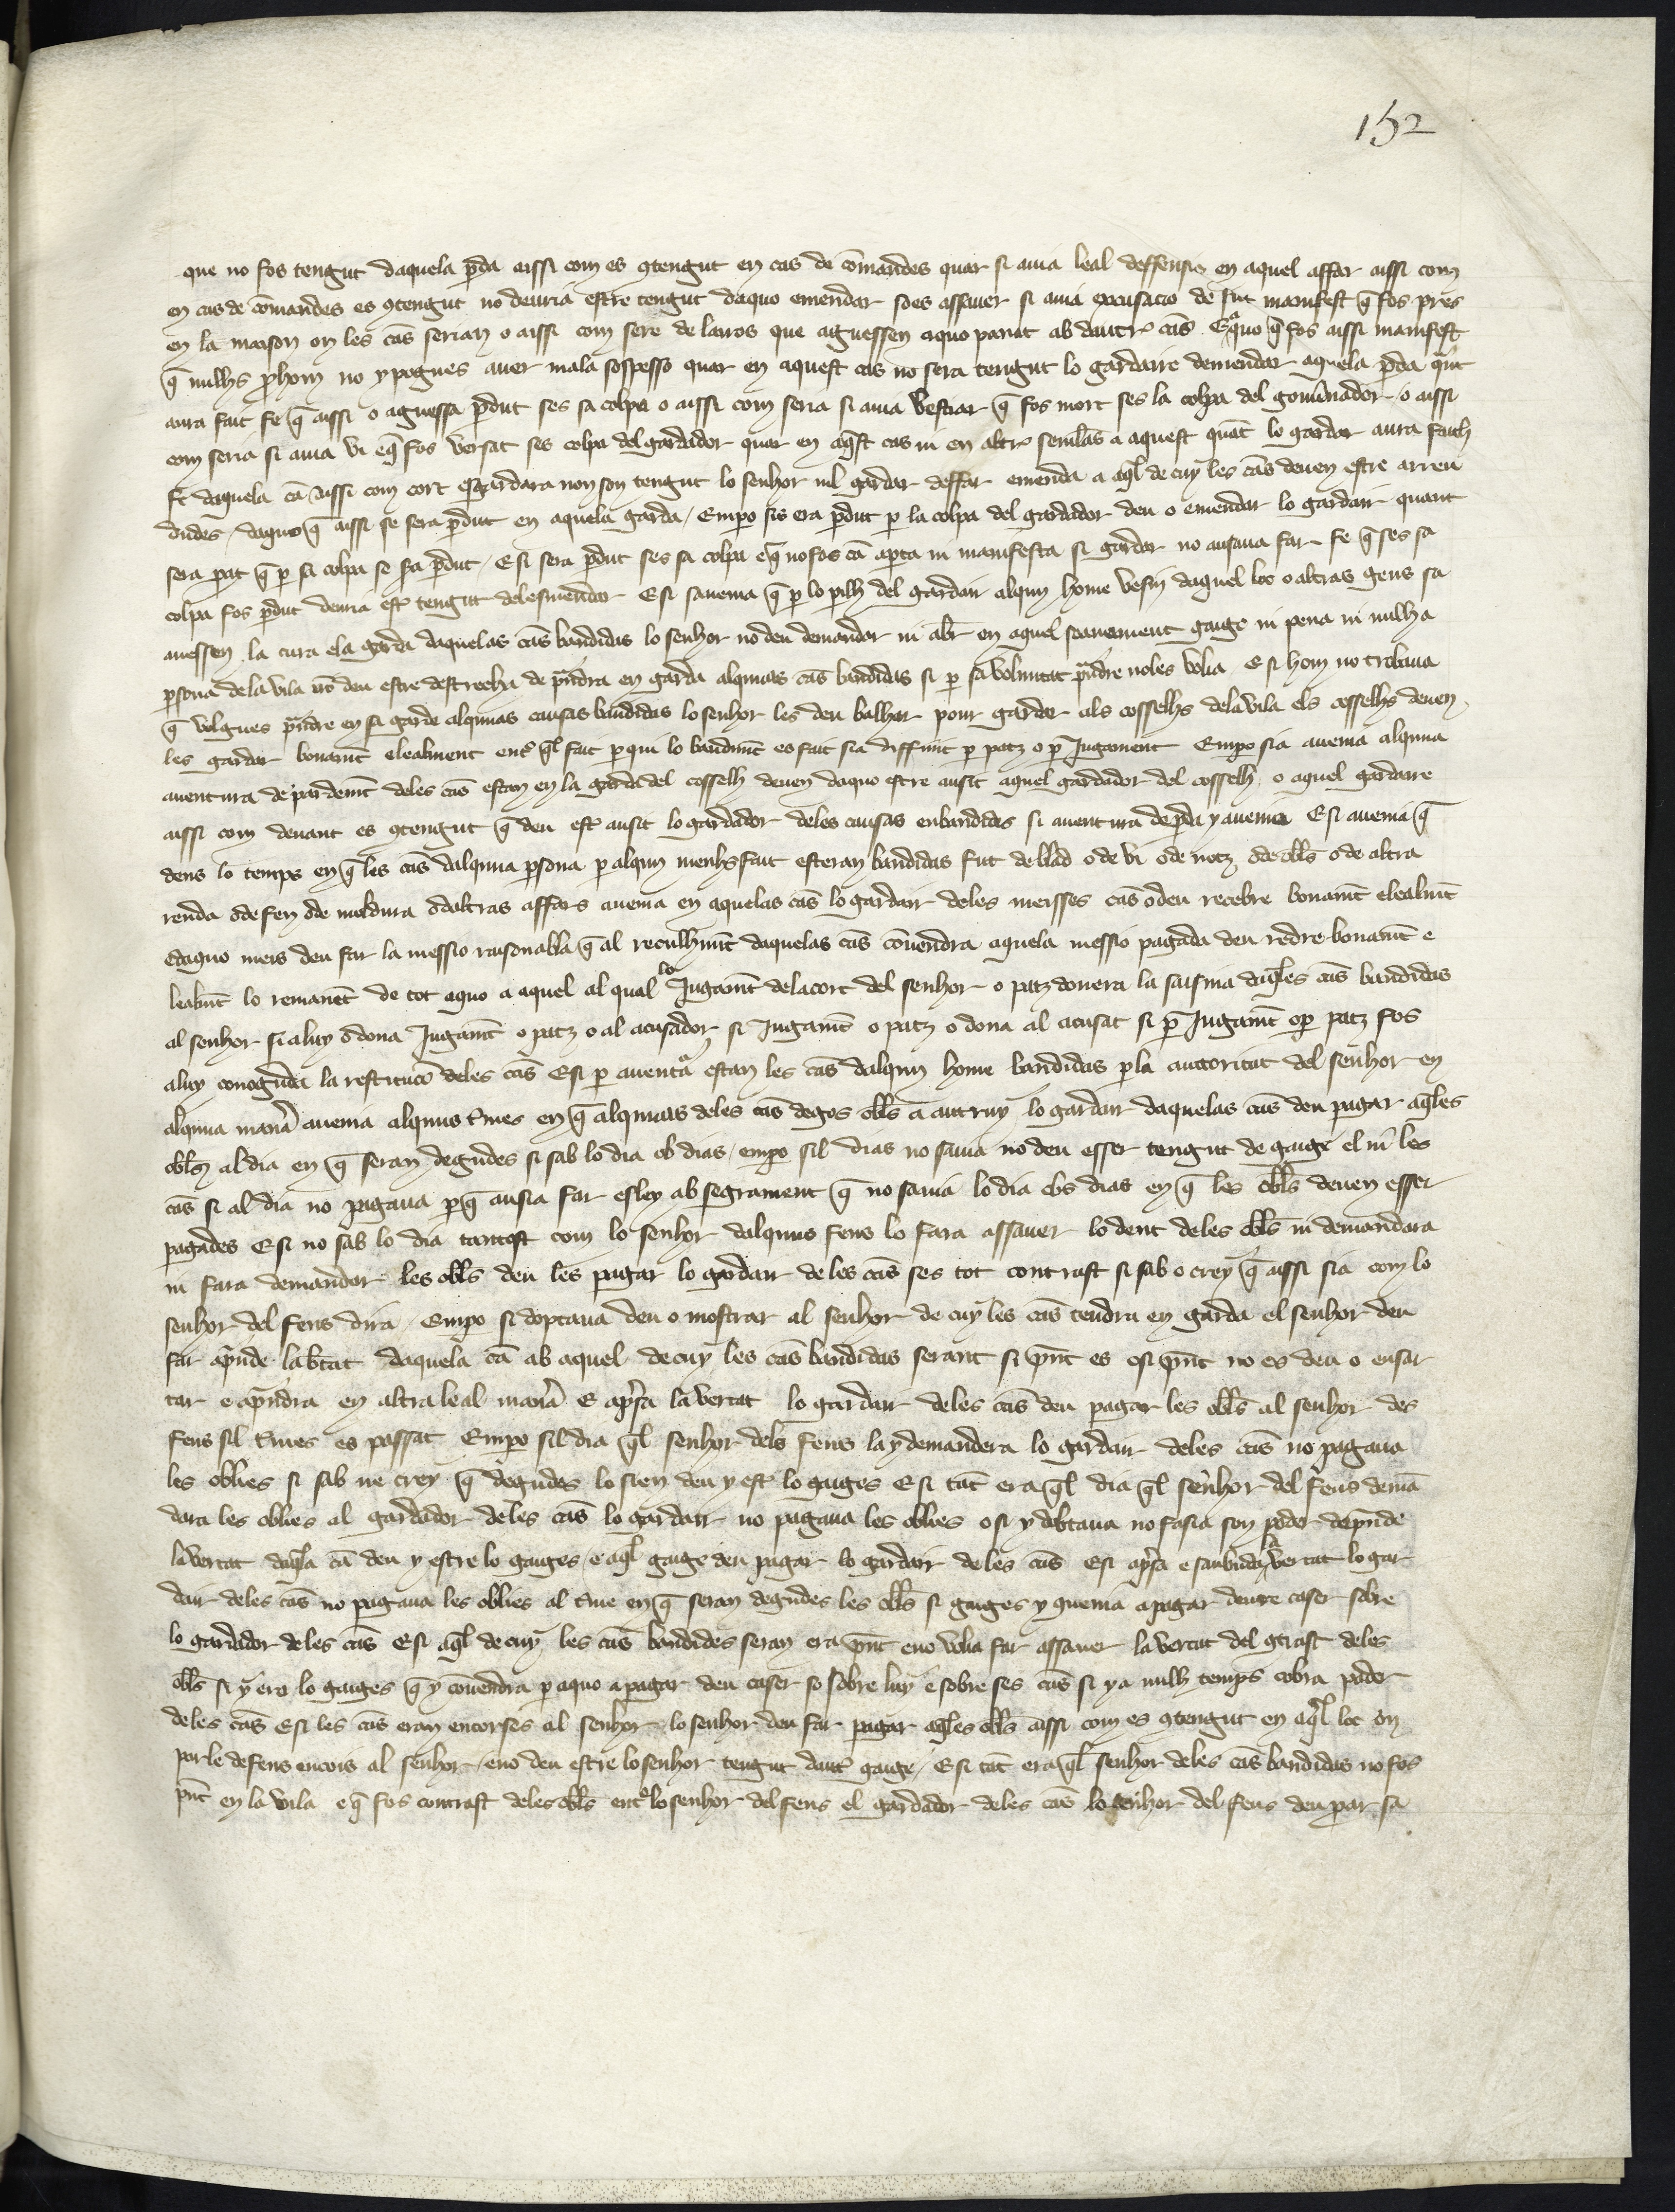 152
que no fos tengut daquela p̄da aissi com es ꝯtengut en cas de cōmandes quar si auia leal deffensio en aquel affar aissi com
en cas de cōmandes es ꝯtengut no deuria estre tengut daquo emendar soes assauer si auia excusacio de fut manifest q̄ fos pres
en la maison on les cās serian o aissi com sere de lairos que aguessen aquo panat ab dautrꝭ cās Eaquo q̄ fos aissi manifest
q̄ nulhs prohom no y pogues auer mala sospesso quar en aquest cas no sera tengut lo gardaire demendar aquela p̄da quāt
aura fait fe q̄ aissi o aguessa p̄dut ses sa colpa o aissi com seria si auia bestiar q̄ fos mort ses la colpa del gouernador o aissi
com seria si auia vi eq̄ fos versat ses colpa del gardador quar en aq̄st cas ni en altrꝭ semlās a aquest quāt lo gardar aura faich
fe daquela cā aissi com cort esgardara non son tengut lo senhor nil gardar deffar emenda a aq̄l de cuy les cās deuen estre arren
dudes daquo q̄ aissi se sera p̄dut en aquela garda / Emp̄o sis era p̄dut p̄ la colpa del gardador deu o emendar lo gardair quant
sera p̄at q̄ p̄ sa colpa se sia p̄dut / E si sera p̄dut ses sa colpa eq̄ nofos cā ap̄ta ni manifesta si gardar no ausaua far fe q̄ ses sa
colpa fos p̄dut deuia estꝭ tengut delesmendar E si sauenia q̄ p̄ lo p̄ilh del gardair alqun home vesin daquel loc o altras gens sa
auessen la cura ela garda daquelas cās bandidas lo senhor no deu demandar ni abꝛ en aquel scauament gaige ni pena ni nulha
p̄sona de la vila nō deu estre destrecha de p̄ndra en garda alqunas cās bandidas si p̄ sa volumtat p̄ndre noles volia E si hom no trobaua
q̄ volgues p̄ndre en sa garde alqunas causas bandidas lo senhor les deu balhar pour gardar als cosselhs dela vila els cosselhs deuen
les gardar bonamēt elealment entꝭ q̄l fait p̄qui lo bandimēt es fait sia diffinit p̄ patz o p̄ Jugament Emp̄o sia auenia alquna
auentura de pardemēt deles cās estan en la garda del cosselh deuen daquo estre ausit aquel gardador del cosselh o aquel gardaire
aissi com deuant es ꝯtengut q̄ deu estꝭ ausit lo gardador deles causas enbandides si auentura de p̄da y auenia E si auenia q̄
dens lo temps en q̄ les cās dalquna p̄sona p̄ alqun menhsfait esteran bandidas fut de blad o de vi o de notz o de oblīs o de altra
renda o de fen o de moldura o daltras affars auenia en aquelas cās lo gardair deles meisses cās o deu recebre bonamēt elealmēt
edaquo meis deu far la messio raisonabla q̄ al reculhimēt daquelas cās cōuendra aquela messio pagada deu redre bonamēt e
lealmēt lo remanēt de tot aquo a aquel al qual lo Jugamēt delacort del senhor o patz donera la saisina daq̄les cās bandidas
al senhor si a luy o dona Jugamēt o patz o al acusador si Jugamēt o patz o dona al acusat si p̄ Jugamēt o p̄ patz fos
a luy conoguda la restitucio deles cās E si p̄ auentā estan les cās dalqun home bandidas p̄ la auttoritat del senhor en
alquna maniā auenia alquns t̄mes en q̄ alqunas deles cās degos oblīs a autruy lo gardair daquelas cās deu pagar aq̄les
oblīs al dia en q̄ seran degudes si sab lo dia ols dias / emp̄o sil dias no sauia no deu esser tengut de gaige el ni les
cās si al dia no pagaua p̄q̄ ausia far esley ab segrament q̄ no sauia lo dia els dias en q̄ les oblīs deuen esser
pagades E si no sab lo dia tantost com lo senhor dalquns feus lo fara assauer lo dent deles oblīs ni demandara
ni fara demandar les oblīs deu les pagar lo gardair de les cās ses tot contrast si sab o crey q̄ aissi sia com lo
senhor del feus dira / Emp̄o si doptaua deu o mostrar al senhor de cuy les cās tendra en garda el senhor deu
far ap̄nde labertat daquela cā ab aquel de cuy les cās bandidas serant si p̄nt es e si p̄nt no es deu o ensar
car e ap̄ndra en altra leal maniā E ap̄sa la vertat lo gardair deles cās deu pagar les oblīs al senhor des
feus sil t̄mes es passat Emp̄o sil dia q̄l senhor dels feus la y demandera lo gardair deles cās no pagaua
les oblies si sab ne crey q̄ degudes lo sien deu y estꝭ lo gaiges E si tāt era q̄l dia q̄l senhor del feus demā
dara les oblies al gardador de les cās lo gardair no pagaua les oblies o si y dobtaua no fasia son poder dap̄nde
la vertat daq̄sa cā deu y estre lo gaiges / e aq̄l gaige deu pagar lo gardair de les cās E si ap̄sa e saubuda la vertat lo gar
dair deles cās no pagaua les oblies al t̄me en q̄ seran degudes les oblīs si gaiges y quenia a pagar deure caser sobre
lo gardador deles cās E si aq̄l de cuy les cās bandides seran era p̄nt eno volia far assauer la vertat del ꝯtrast deles
oblīs si y era lo gaiges q̄ y cōuendra p̄ aquo a pagar deu caser so sobre luy e sobre ses cās si ya nulh temps cobra poder
deles cās E si les cās eran encorses al senhor lo senhor deu far pagar aq̄les oblīs aissi com es ꝯtengut en aq̄l loc on
parle de feus encors al senhor / eno deu estre lo senhor tengut dautꝭ gaige / E si tāt era q̄l senhor deles cās bandidas no fos
p̄nt en la vila e q̄ fos contrast deles oblīs entꝭ lo senhor del feus el gardador deles cās lo senhor del feus deu p̄ar sa